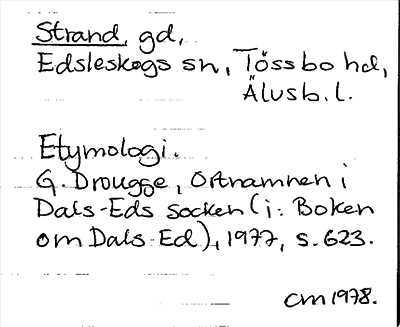 Strand, gd,
Edsleskogs sn, Tössbo hd,
Älvsb. l.
Etymologi.
G. Drougge, Ortnamnen i
Dals-Eds socken (i: Boken
om Dals-Ed), 1977, s. 623.
cm 1978.